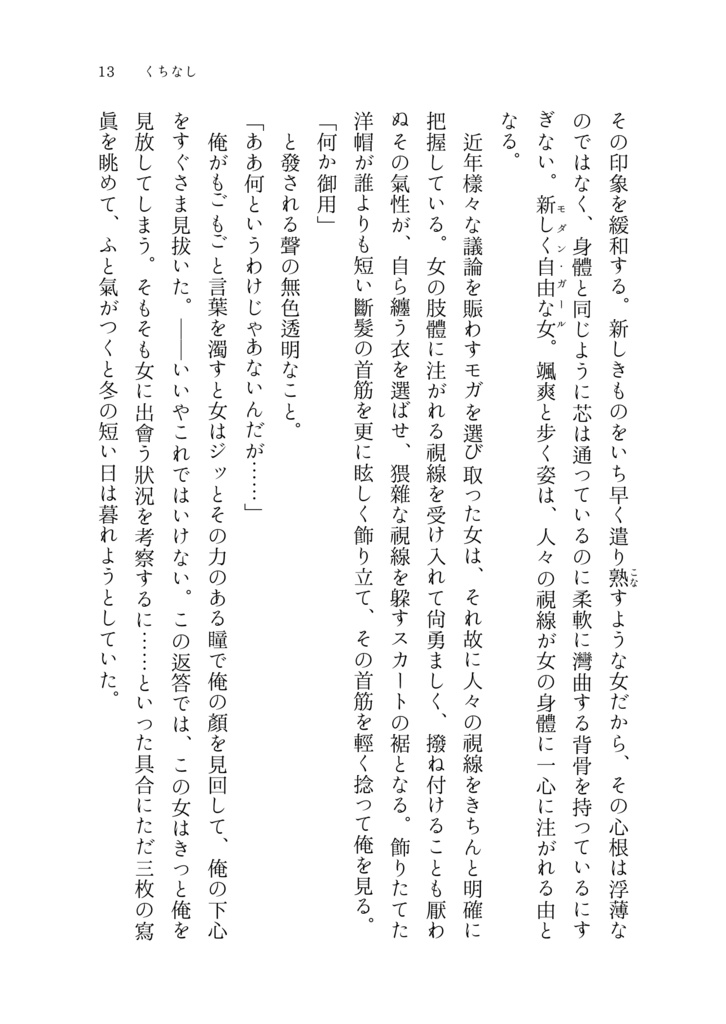 13 くちなし
その印象を緩和する。新しきものをいち早く遣り熟すような女だから、その心根は浮薄な
こな
のではなく、身體と同じように芯は通つているのに柔軟に灣曲する背骨を持つているにす
ぎない。新しく自由な女。颯爽と歩く姿は、人々の視線が女の身體に一心に注がれる由と
モダン・ガール
なる。
近年樣々な議論を賑わすモガを選び取った女は、それ故に人々の視線をきちんと明確に
把握している。女の肢體に注がれる視線を受け入れて尙勇ましく、撥ね付けることも厭わ
ぬその氣性が、自ら纏う衣を選ばせ、猥雜な視線を躱すスカートの裾となる。飾りたてた
洋帽が誰よりも短い斷髮の首筋を更に眩しく飾り立て、その首筋を輕く捻って俺を見る。
「何か御用」
と發される聲の無色透明なこと。
「ああ何というわけじゃあないんだが……」
俺がもごもごと言葉を濁すと女はジッとその力のある瞳で俺の顏を見回して、俺の下心
をすぐさま見拔いた。――いいやこれではいけない。この返答では、この女はきっと俺を
見放してしまう。そもそも女に出會う狀況を考察するに……といった具合にただ三枚の寫
眞を眺めて、ふと氣がつくと冬の短い日は暮れようとしていた。